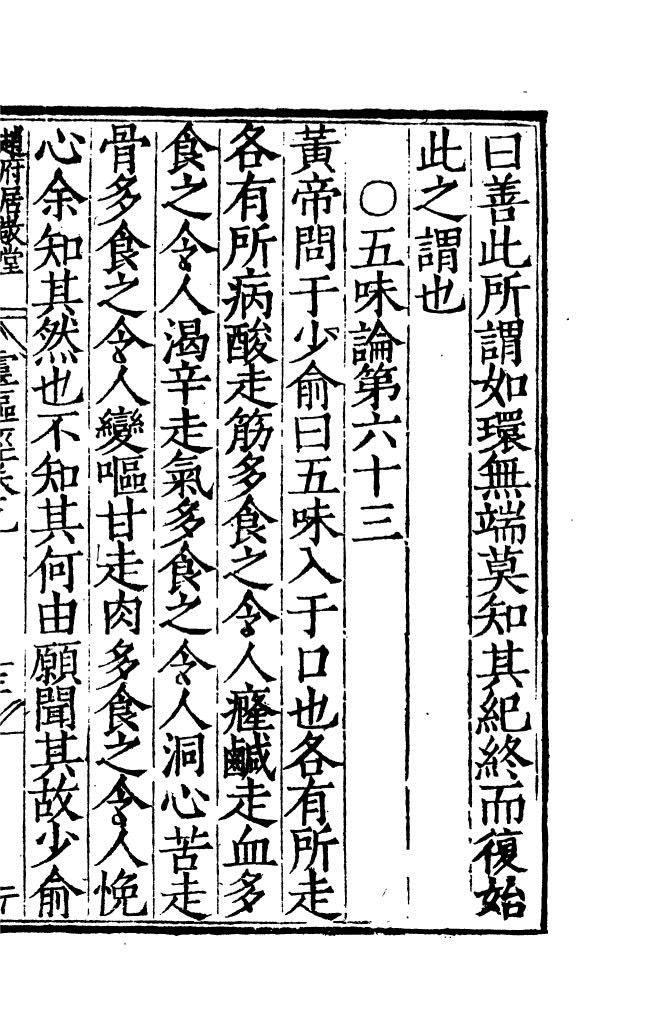 曰善此所謂如環無端莫知其紀終而復始
此之謂也
○五味論第六十三
黃帝問于少俞曰五味入于口也各有所走
各有所病酸走筋多食之令人癃鹹走血多
食之令人渴辛走氣多食之令人洞心苦走
骨多食之令人變嘔甘走肉多食之令人悗
心余知其然也不知其何由願聞其故少俞
趙府居敬堂